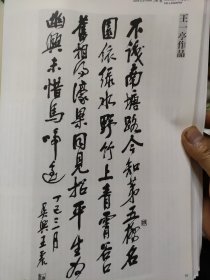 王一亭作品
不识南塘路今知第五桥名
园依绿水野竹上青霄谷口
旧相得濠梁同见招平生为
幽兴未惜马蹄遥
丁巳三月
吴兴王震